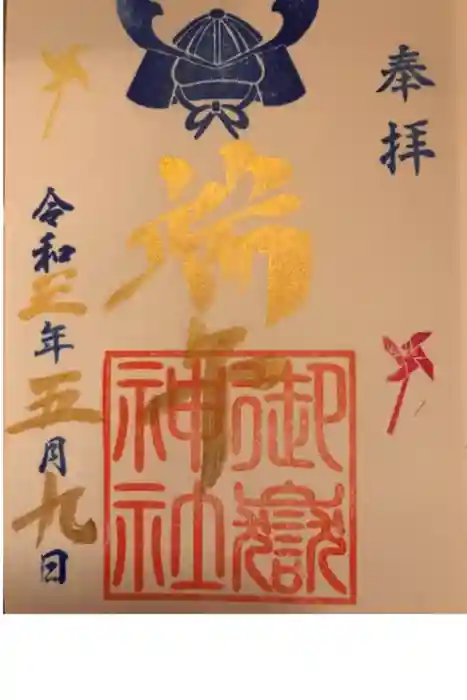 奉拝
端午
御嶽神社
令和三年五月九日